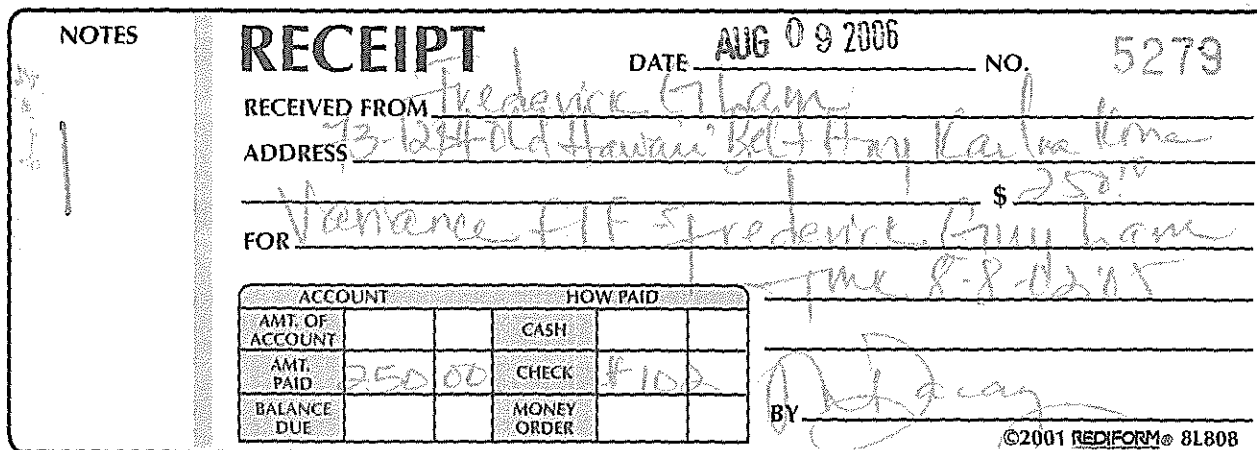 NOTES
RECEIPT DATE AUG 09 2006 NO. 5279
RECEIVED FROM Frederick G Lam
ADDRESS 73-1284 Old Hawaii Belt Hwy Kailua Kona
$ 250.00
FOR Variance f/F - Frederick Guy Lam
TMK 8-8-02:05
ACCOUNT HOW PAID
AMT. OF ACCOUNT CASH
AMT. PAID 250 00 CHECK #102
BALANCE DUE MONEY ORDER
BY
©2001 REDIFORM® 8L808